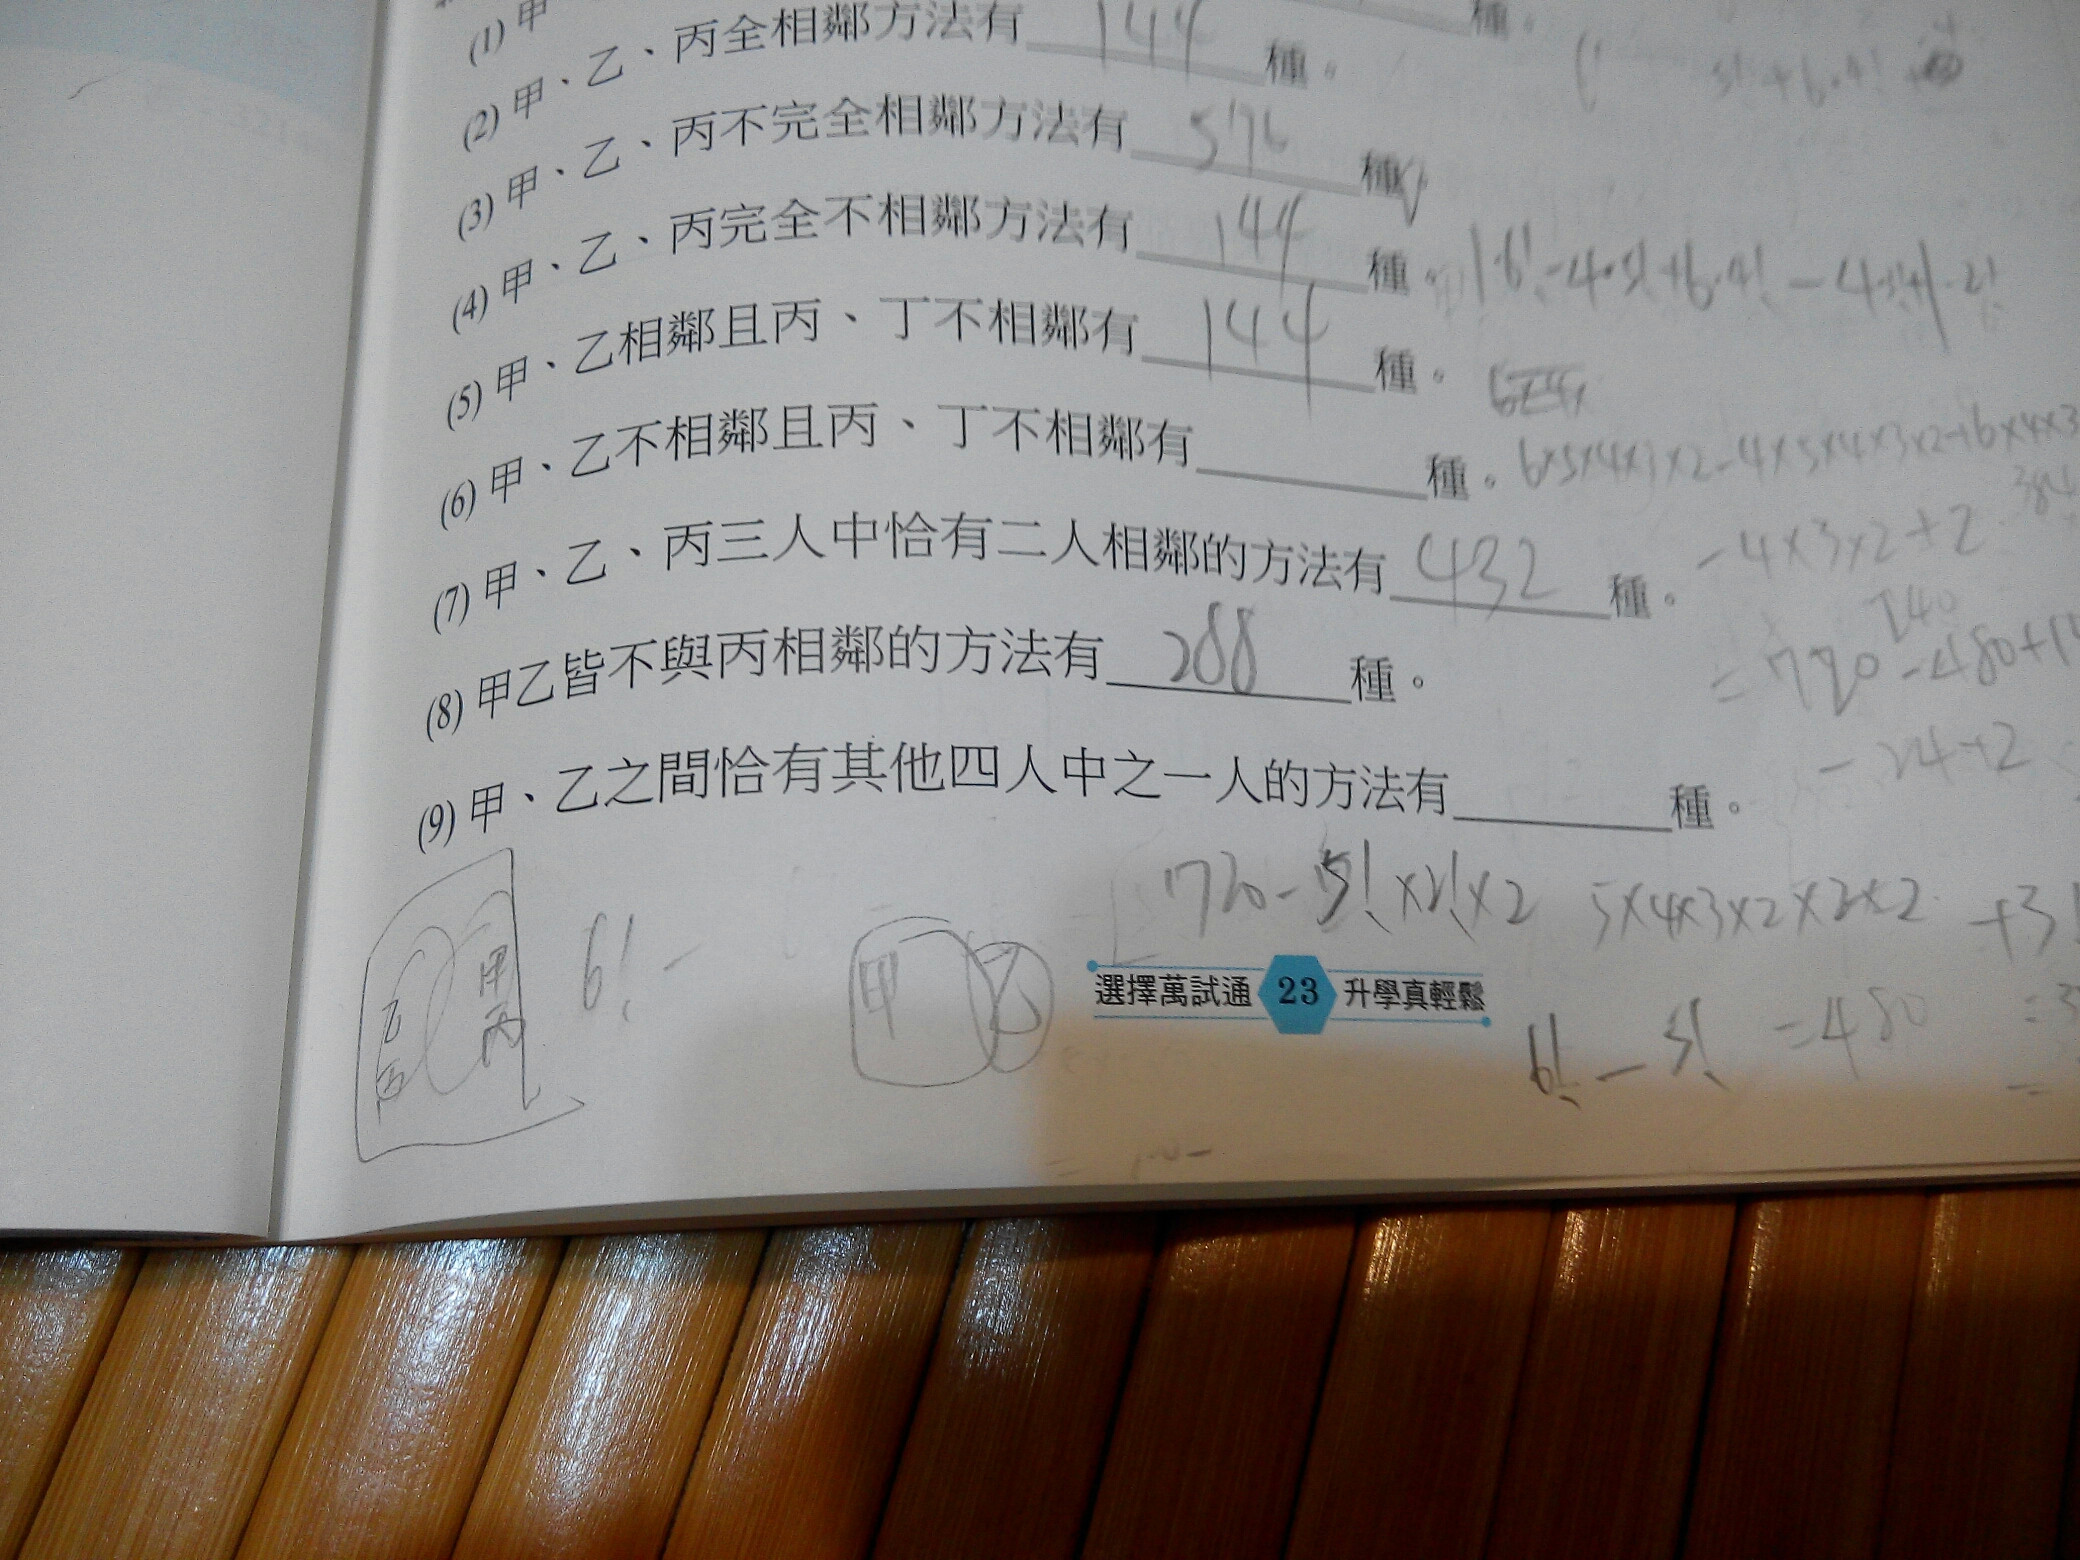 (1) 甲
種。
(2) 甲、乙、丙全相鄰方法有 144 種。
5! + 6·4!
(3) 甲、乙、丙不完全相鄰方法有 576 種。
(4) 甲、乙、丙完全不相鄰方法有 144 種。
1·6! - 4·5! + 6·4! - 4·3! + 1·2!
(5) 甲、乙相鄰且丙、丁不相鄰有 144 種。
(6) 甲、乙不相鄰且丙、丁不相鄰有 種。
6×5×4×3×2-4×5×4×3×2+6×4×3
384
-4×3×2+2
(7) 甲、乙、丙三人中恰有二人相鄰的方法有 432 種。
240
= 720-480+14
(8) 甲乙皆不與丙相鄰的方法有 288 種。
-24+2
(9) 甲、乙之間恰有其他四人中之一人的方法有 種。
720-5!×2!×2 5×4×3×2×2×2 +3!
乙丙 甲丙 6! - 甲 乙
選擇萬試通 23 升學真輕鬆
6! - 5! =480